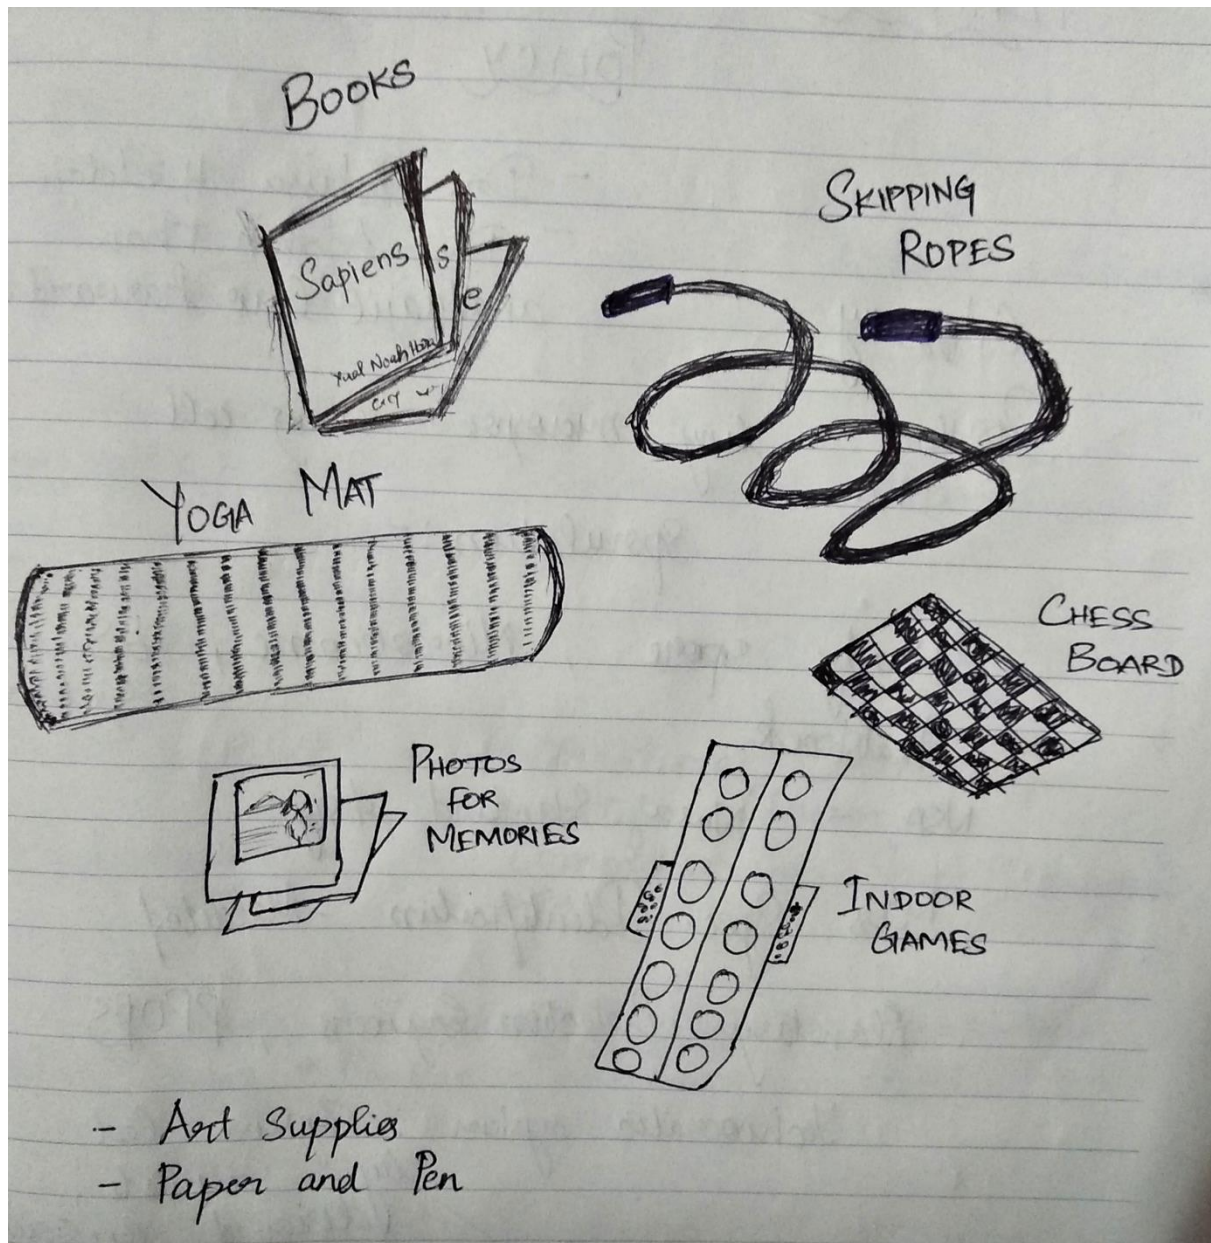 BOOKS
Sapiens
s
e
Yual Noah Hara
SKIPPING
ROPES
YOGA MAT
CHESS
BOARD
PHOTOS
FOR
MEMORIES
INDOOR
GAMES
- Art Supplies
- Paper and Pen